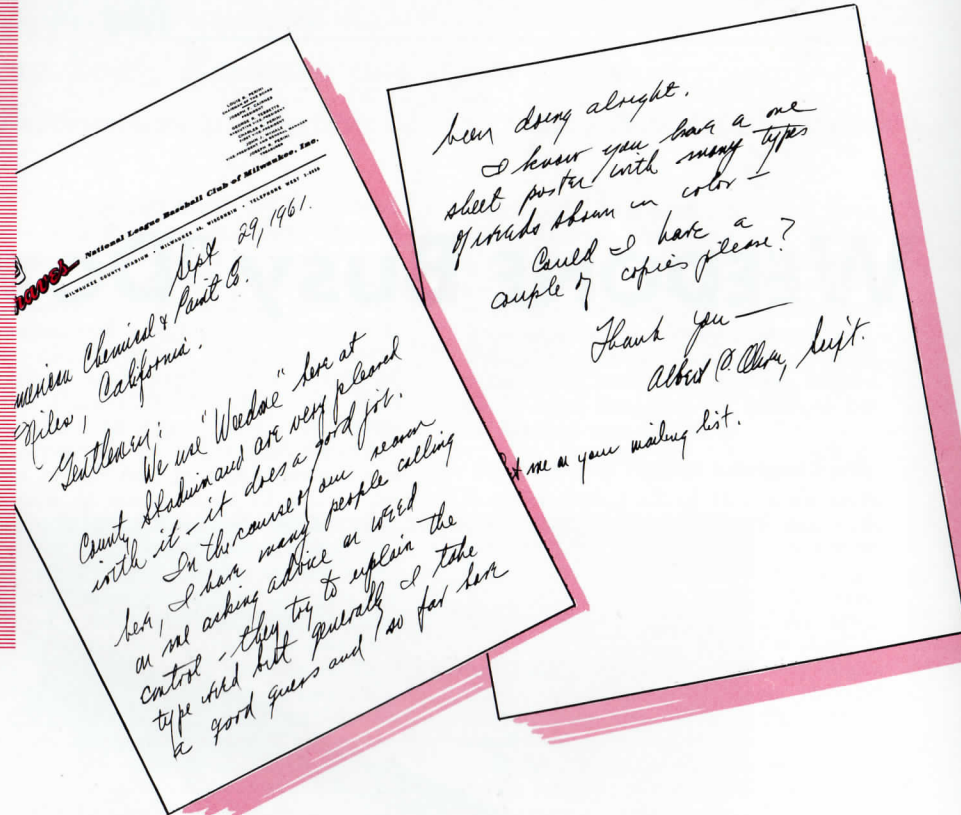 LOUIS R. PERINI
CHAIRMAN OF THE BOARD
JOSEPH F. CAIRNES
PRESIDENT
GEORGE R. TEBBETTS
EXECUTIVE VICE PRESIDENT
TREASURER
raves National League Baseball Club of Milwaukee, Inc.
MILWAUKEE COUNTY STADIUM • MILWAUKEE 14, WISCONSIN • TELEPHONE WEST
Sept 29, 1961.
merican Chemical & Paint Co.
Niles, California.
Gentlemen:
We use "Weedone" here at
County Stadium and are very pleased
with it - it does a good job.
In the course of our season
here, I have many people calling
on me asking advice on weed
control - they try to explain the
type weed but generally I take
a good guess and so far have
been doing alright.
I know you have a one
sheet poster with many types
of weeds shown in color -
Could I have a
couple of copies please?
Thank you —
Albert C. Supt.
t me on your mailing list.